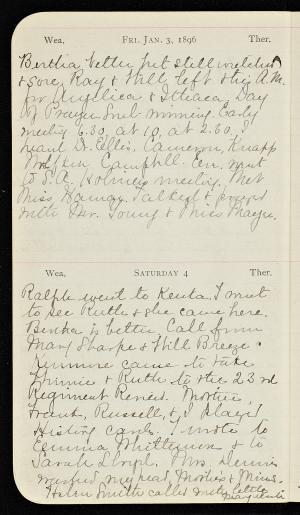 Wea. FRI. JAN. 3, 1896 Ther.
Bertha better but still wretched
& sore. Ray & Will left this A.M.
for Angelica & Ithaca. Day
of Prayer and morning. Early
meeting 6.30, at 10, at 2.60. I
heard Dr. Ellis, Cameron, Knapp
Campbell. Eve. went
to S.A. Holiness meeting. Met
Miss Talked & prayed
with Mr. Young & Miss
Wea. SATURDAY 4 Ther.
Ralph went to Keuka. I went
to see Ruth & she came here.
Bertha is better. Call from
Mary Sharpe & Will Breeze.
came to take
Minnie & Ruth to the 23rd
Regiment Review. Mother,
Frank, Russell, & I played
History cards. I wrote to
Emma Whittemore & to
Sarah Mrs. Dennis
washed my head, Mother's & Mina's.
Helen Smith called with little
Marguerite